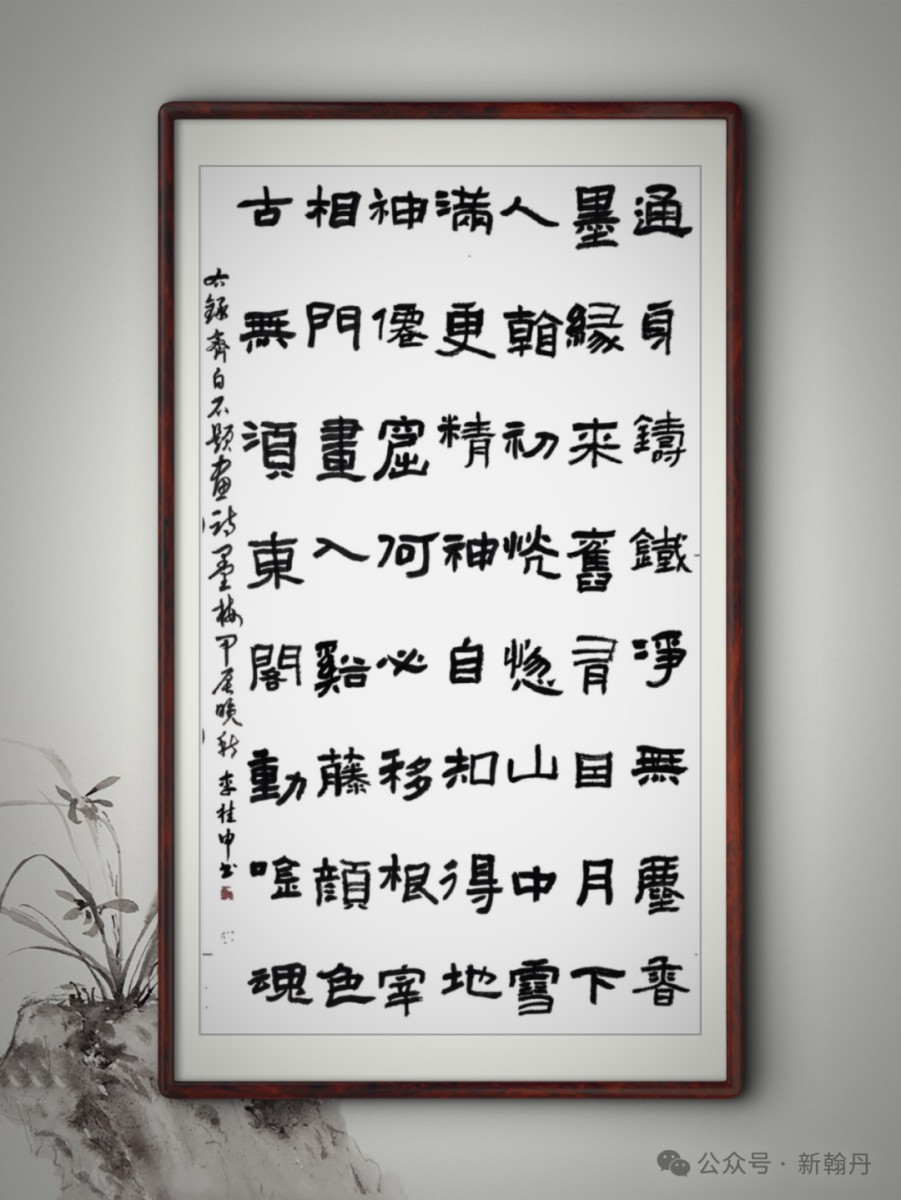 通身鑄鐵淨無塵香
墨緣來舊有因月下
人翰初恍惚山中雪
滿更精神自知得地
神僊窟何必移根宰
相門畫入谿藤顏色
古無須東閣動唫魂
右錄齊白石題畫詩墨梅甲辰晚秋李桂申书
公众号·新翰丹